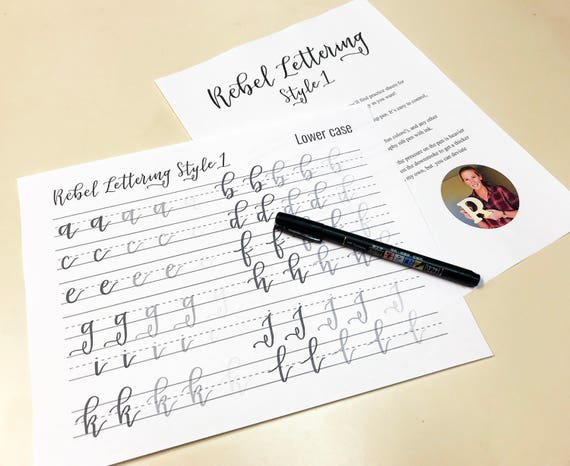 Rebel Lettering
Style 1
find practice sheets for
as you want!
pen. It's easy to control,
fun colors!, and any other
nib pen with ink.
the pressure on the pen is heavier
on the downstroke to get a thicker
my own, but you can deviate
R
Lower case
Rebel Lettering Style 1
a a a a b b b b b
c c c c d d d d
e e e e f f f
g g g g g h h h h
i i i i j j j j j
k k k k k l l l l l